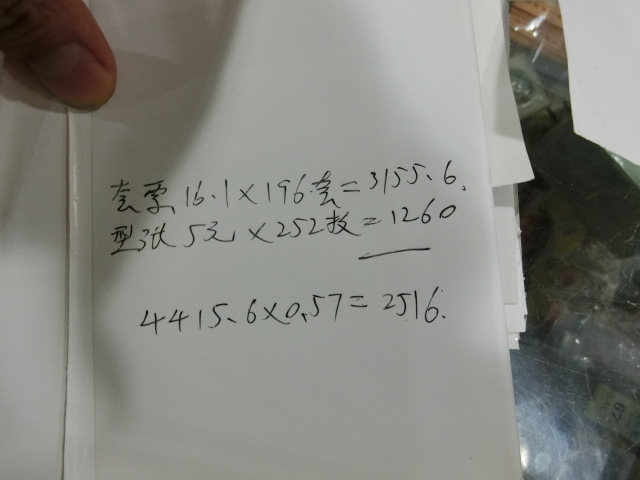 套票16.1×196套=3155.6.
型张5元×252枚=1260
4415.6×0.57=2516.